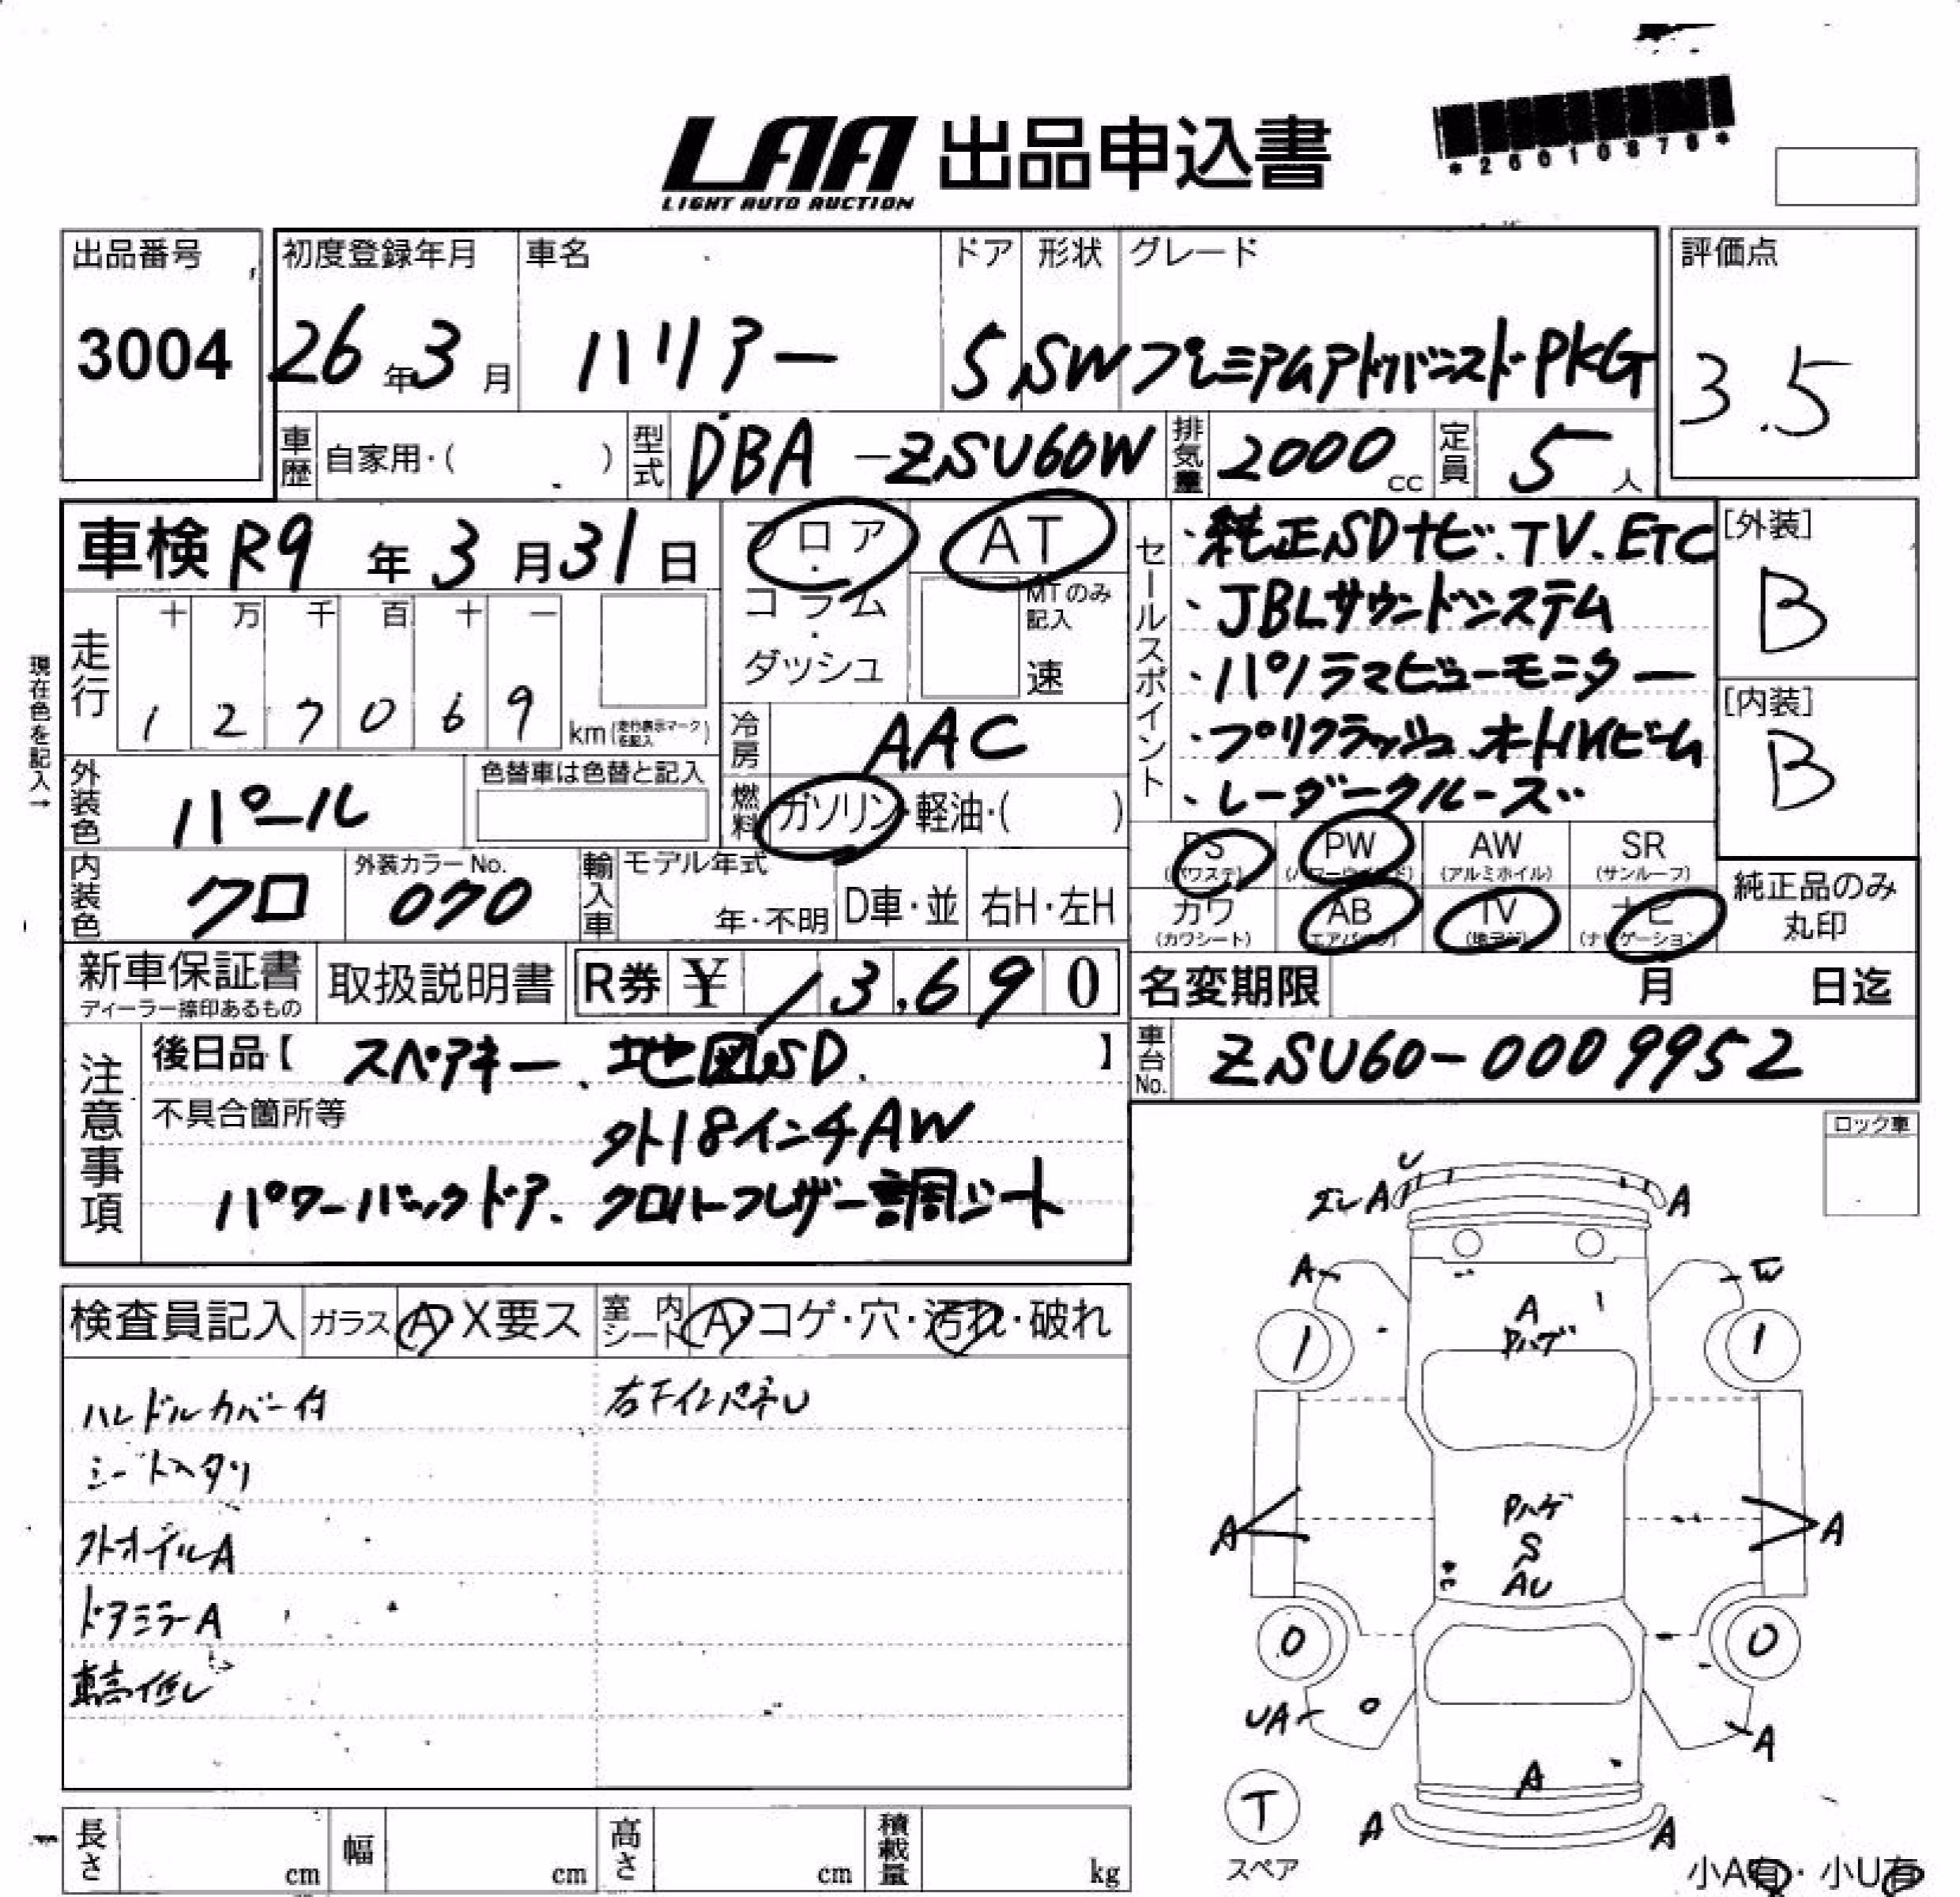 LAA 出品申込書
LIGHT AUTO AUCTION
*26010876*
出品番号
3004
初度登録年月
26年3月
車名
ハリアー
ドア
5
形状
SW
グレード
プレミアムアドバンスドPKG
評価点
3.5
車歴 自家用・( )
型式 DBA-ZSU60W
排気量 2000 cc
定員 5 人
車検 R9 年 3 月 31 日
フロア・コラム・ダッシュ
AT
MTのみ記入
速
走行
十 万 千 百 十 一
1 2 7 0 6 9 km (走行表示マークを記入)
現在色を記入→
冷房 AAC
燃料 ガソリン・軽油・( )
外装色 パール
色替車は色替と記入
内装色 クロ
外装カラーNo. 070
輸入車 モデル年式 年・不明 D車・並 右H・左H
セールスポイント
・純正SDナビ、TV、ETC
・JBLサウンドシステム
・パノラマビューモニター
・プリクラッシュ、オートHiビーム
・レーダークルーズ
[外装]
B
[内装]
B
PS (パワステ) PW (パワーウインド) AW (アルミホイル) SR (サンルーフ)
カワ (カワシート) AB (エアバッグ) TV (地デジ) ナビ (ナビゲーション)
純正品のみ丸印
新車保証書 ディーラー捺印あるもの
取扱説明書
R券 ¥ 13,690
名変期限 月 日迄
車台No. ZSU60-0009952
注意事項
後日品【 スペアキー、地図SD. 】
不具合箇所等
外18インチAW
パワーバックドア、クロハーフレザー調シート
ロック車
検査員記入 ガラス A X要ス 室内シート A・コゲ・穴・汚れ・破れ
ハンドルカバー付
右下インパネU
シートヘタリ
外オーデルA
ドアミラーA
車高低し
U
ズレA A
A W
A
Pハゲ
1 1
A A
Pハゲ
S
AU
0 0
UA A
A
A A
T
スペア
小A有・小U有
長さ cm 幅 cm 高さ cm 積載量 kg